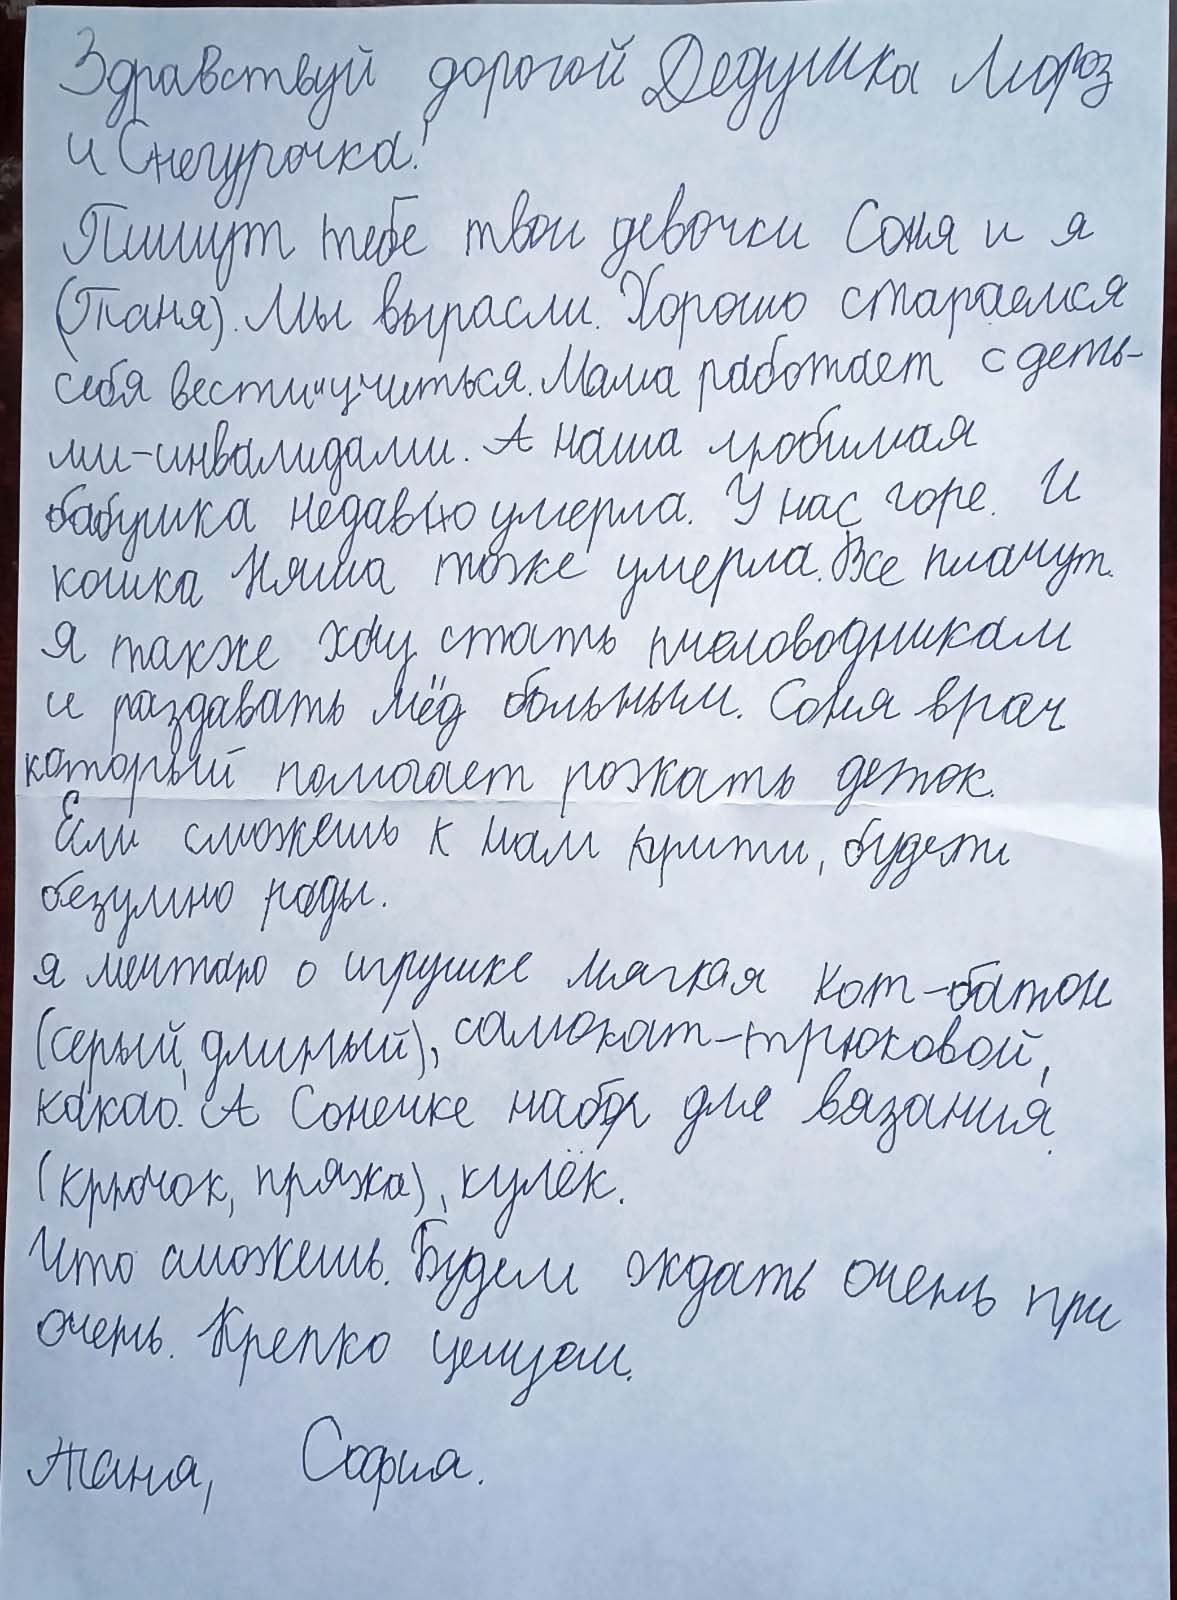 Здравствуй дорогой Дедушка Мороз
и Снегурочка!
Пишут тебе твои девочки Соня и я
(Таня). Мы вырасли. Хорошо стараемся
себя вести и учиться. Мама работает с деть-
ми-инвалидами. А наша любимая
бабушка недавно умерла. У нас горе. И
кошка Няша тоже умерла. Все плачут.
Я также хочу стать пчеловодникам
и раздавать мёд больным. Соня врач
который помогает рожать деток.
Если сможешь к нам прити, будем
безумно рады.
я мечтаю о игрушке мягкая кот-батон
(серый, длиный), самокат-трюковой,
какао. А Сонечке набор для вязания
(крючок, пряжа), кулёк.
Что сможешь. Будем ждать очень при
очень. Крепко целуем.
Таня, София.